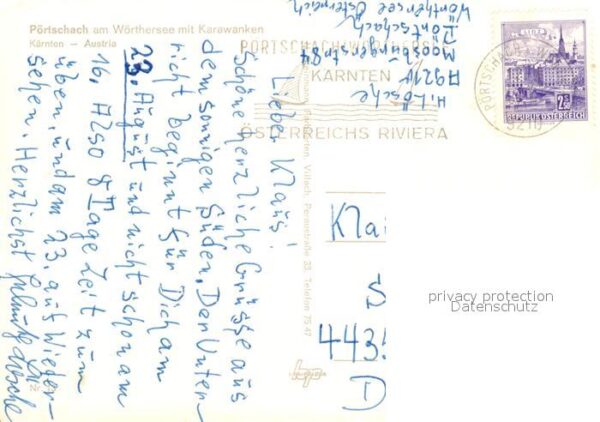 Pörtschach am Wörthersee mit Karawanken
Kärnten – Austria
Lieber Klaus!
Schöne herzliche Grüsse aus
dem sonnigen Süden. Der Unter-
richt beginnt für Dich am
23. August und nicht schon am
16. Also 8 Tage Zeit zum
üben, und am 23. auf Wieder-
sehen. Herzlichst
Lösche
H. Lösche
A 9210
Pörtschach
Wörthersee Österreich
PÖRTSCHACH
KÄRNTEN
ÖSTERREICHS RIVIERA
PÖRTSCHACH
9210
LINZ
2.50
REPUBLIK ÖSTERREICH
Villach, Peraustraße 23, Telefon 75 47
Klai
S
443
D
privacy protection
Datenschutz
Nr.